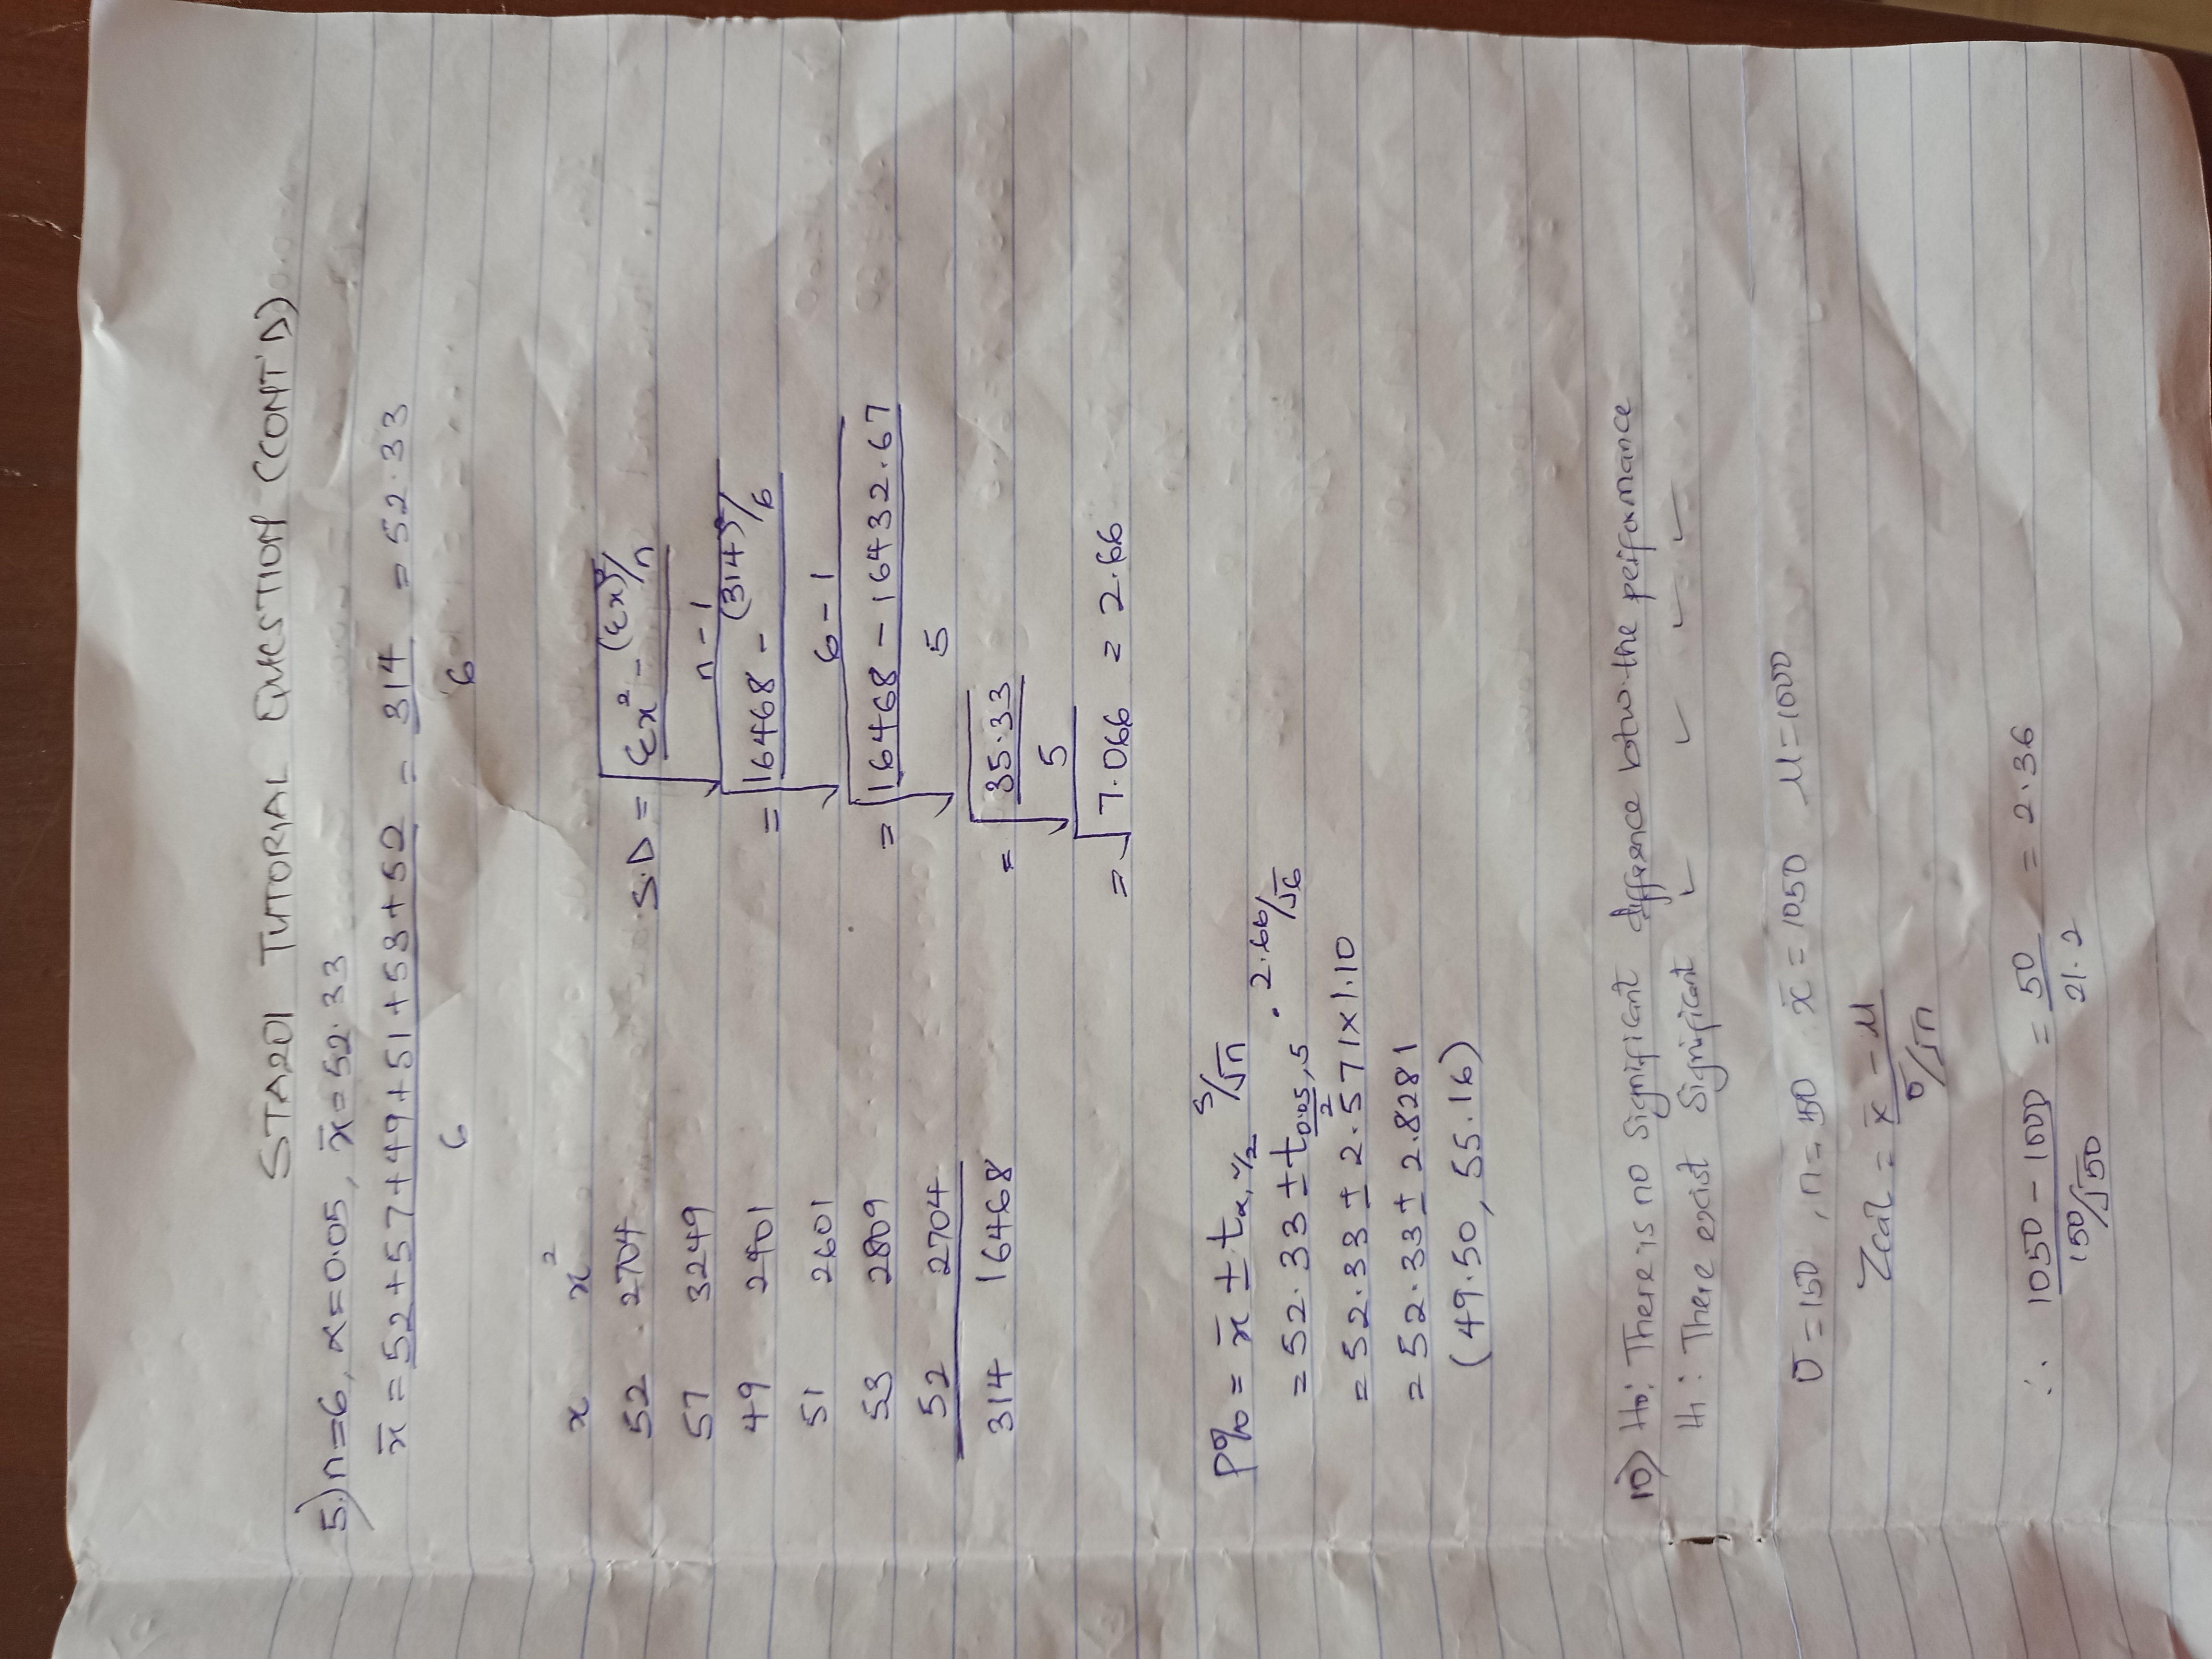 STA201 TUTORIAL QUESTION (CONT'D)
5.) n=6, α=0.05, x̄=52.33
x̄ = 52+57+49+51+53+52 / 6 = 314 / 6 = 52.33
x x²
52 2704
57 3249
49 2401
51 2601
53 2809
52 2704
314 16468
S.D = √((Σx² - (Σx)²/n) / (n-1))
= √((16468 - (314)²/6) / (6-1))
= √((16468 - 16432.67) / 5)
= √(35.33 / 5)
= √7.066 = 2.66
P% = x̄ ± t α, v/2 s/√n
= 52.33 ± t 0.05/2, 5 · 2.66/√6
= 52.33 ± 2.571×1.10
= 52.33 ± 2.8281
(49.50, 55.16)
10) H₀: There is no significant difference btw the performance
H₁: There exist significant ✓ ✓ ✓ ✓
σ=150, n=50 x̄=1050 μ=1000
Zcal = (x̄ - μ) / (σ/√n)
∴ (1050 - 1000) / (150/√50) = 50 / 21.2 = 2.36